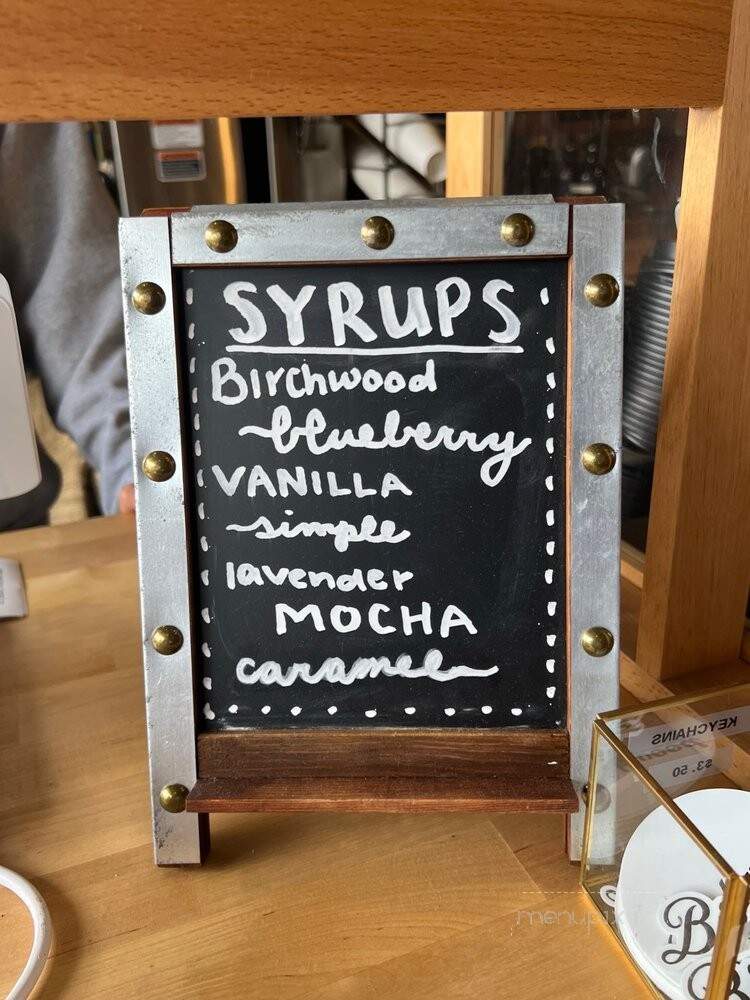 SYRUPS
Birchwood
blueberry
VANILLA
simple
lavender
MOCHA
caramel
KEYCHAINS
$3.50
menupix